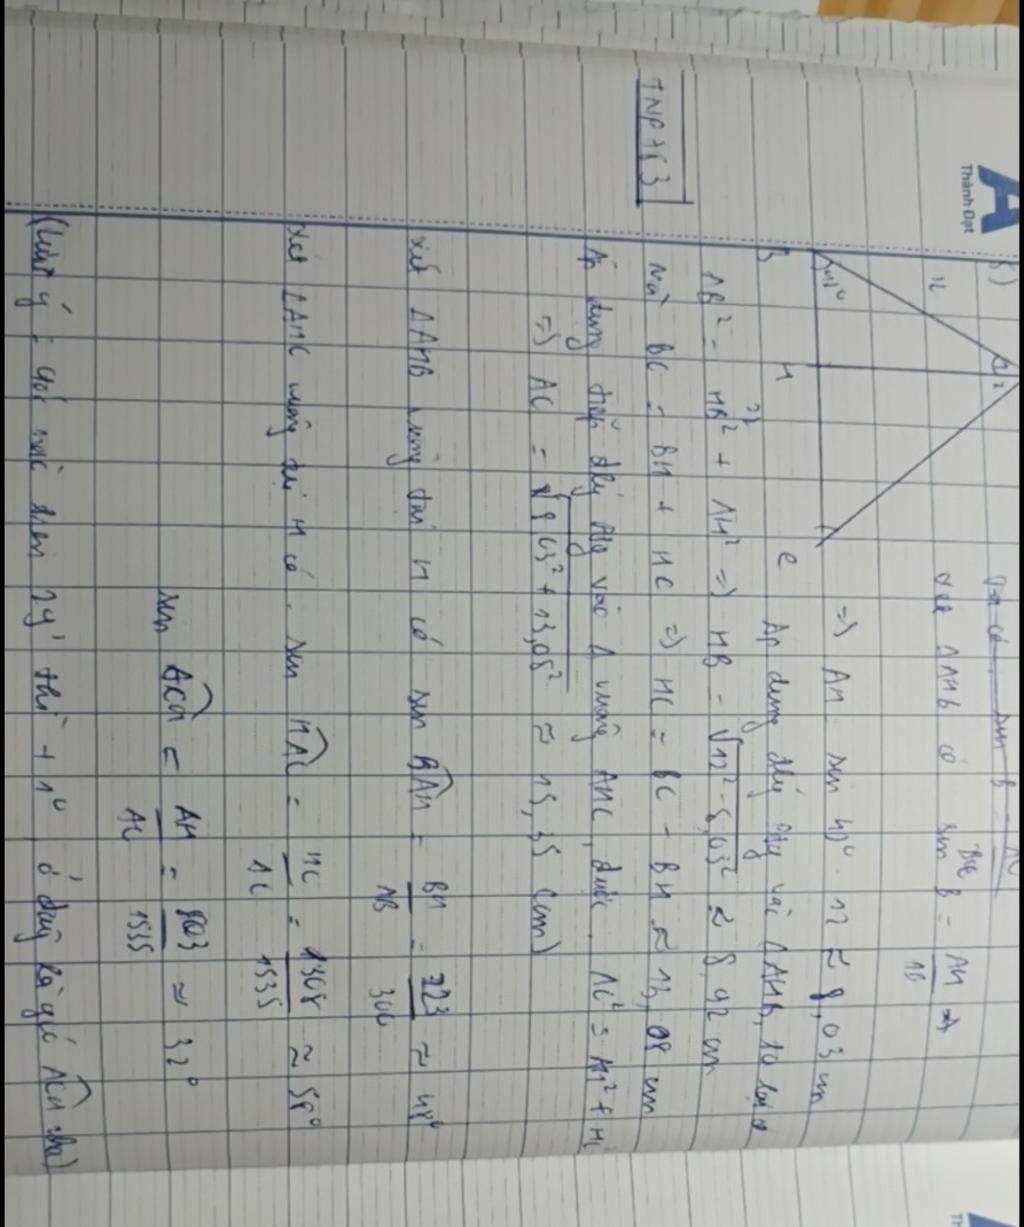 Thành Đạt
b)
12
42°
B
H
C
Xét ΔAHB có sin B = AH/AB
=> AH = sin 42° . 12 ≈ 8,03 cm
Áp dụng đlý Pytago vào ΔAHB, ta có
AB² = HB² + AH² => HB = √12² - 8,03² ≈ 8,92 cm
TNP7163
Mà BC = BH + HC => HC = BC - BH ≈ 13,08 cm
Áp dụng tiếp đlý Pytago vào Δ vuông AHC, được: AC² = AH² + HC
=> AC = √8,03² + 13,08² ≈ 15,35 (cm)
Xét ΔAHB vuông tại H có sin BAH = BH/AB = 223/300 ≈ 48°
Xét ΔAHC vuông tại H có: sin HAC = HC/AC = 1308/1535 ≈ 58°
sin ACH = AH/AC = 803/1535 ≈ 32°
(Lưu ý: góc nào trên 29' thì + 1° ở đây là góc ACH nha)